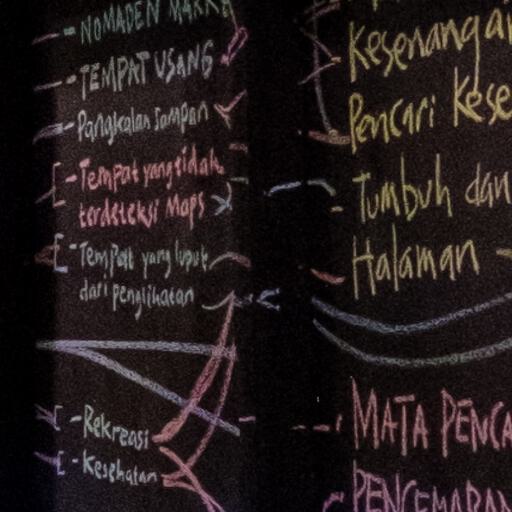 - NOMADEN MAKNA
- TEMPAT USANG
- Pangkalan Sampan
- Tempat yang tidak
terdeteksi Maps
- Tempat yang luput
dari penglihatan
- Rekreasi
- Kesehatan
Kesenangan
Pencari Kese
- Tumbuh dan
Halaman -
MATA PENCA
PENCEMARAN